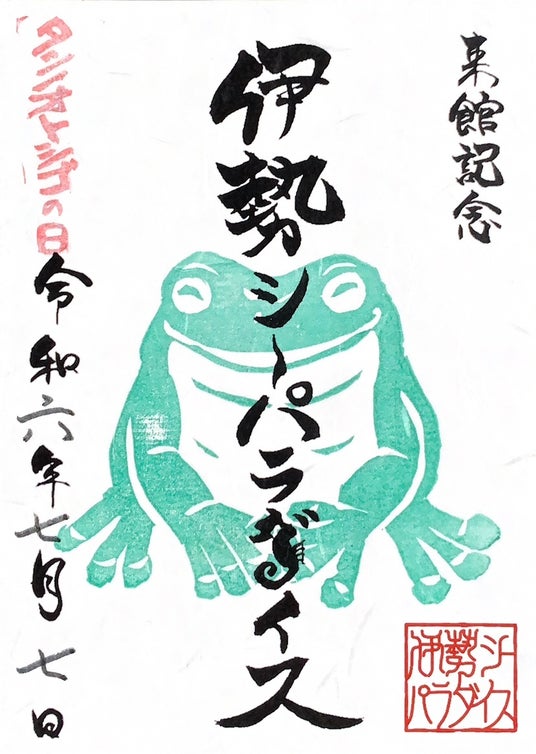 来館記念
伊勢シーパラダイス
タツノオトシゴの日
令和六年七月七日
伊勢シー
パラダイス